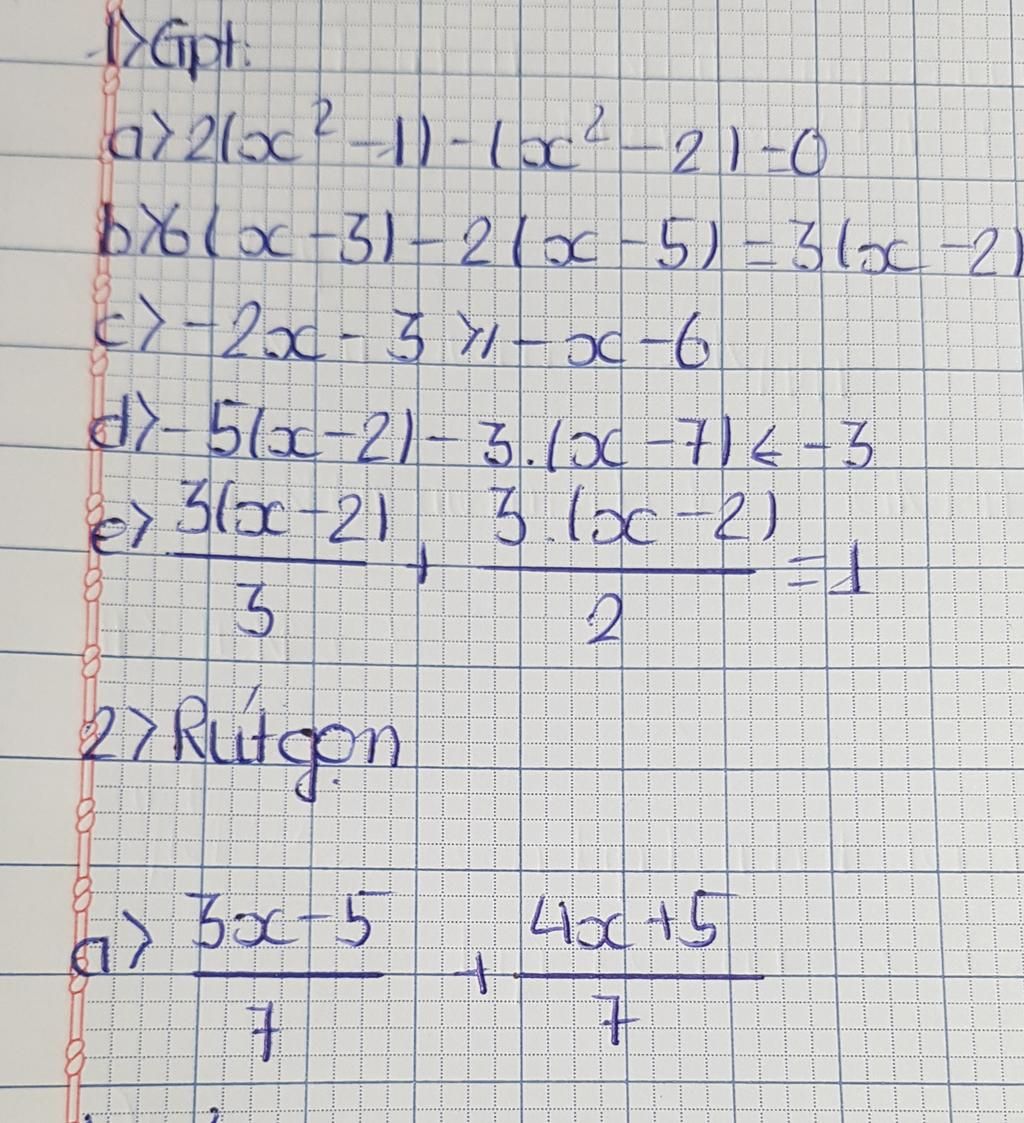 1> Gpt:
a> 2(x² - 1) - (x² - 2) = 0
b> 6(x - 3) - 2(x - 5) = 3(x - 2)
c> - 2x - 3 ≥ - x - 6
d> - 5(x - 2) - 3.(x - 7) < - 3
e> 3(x - 2)/3 + 3.(x - 2)/2 = 1
2> Rút gọn
a> 3x - 5/7 + 4x + 5/7